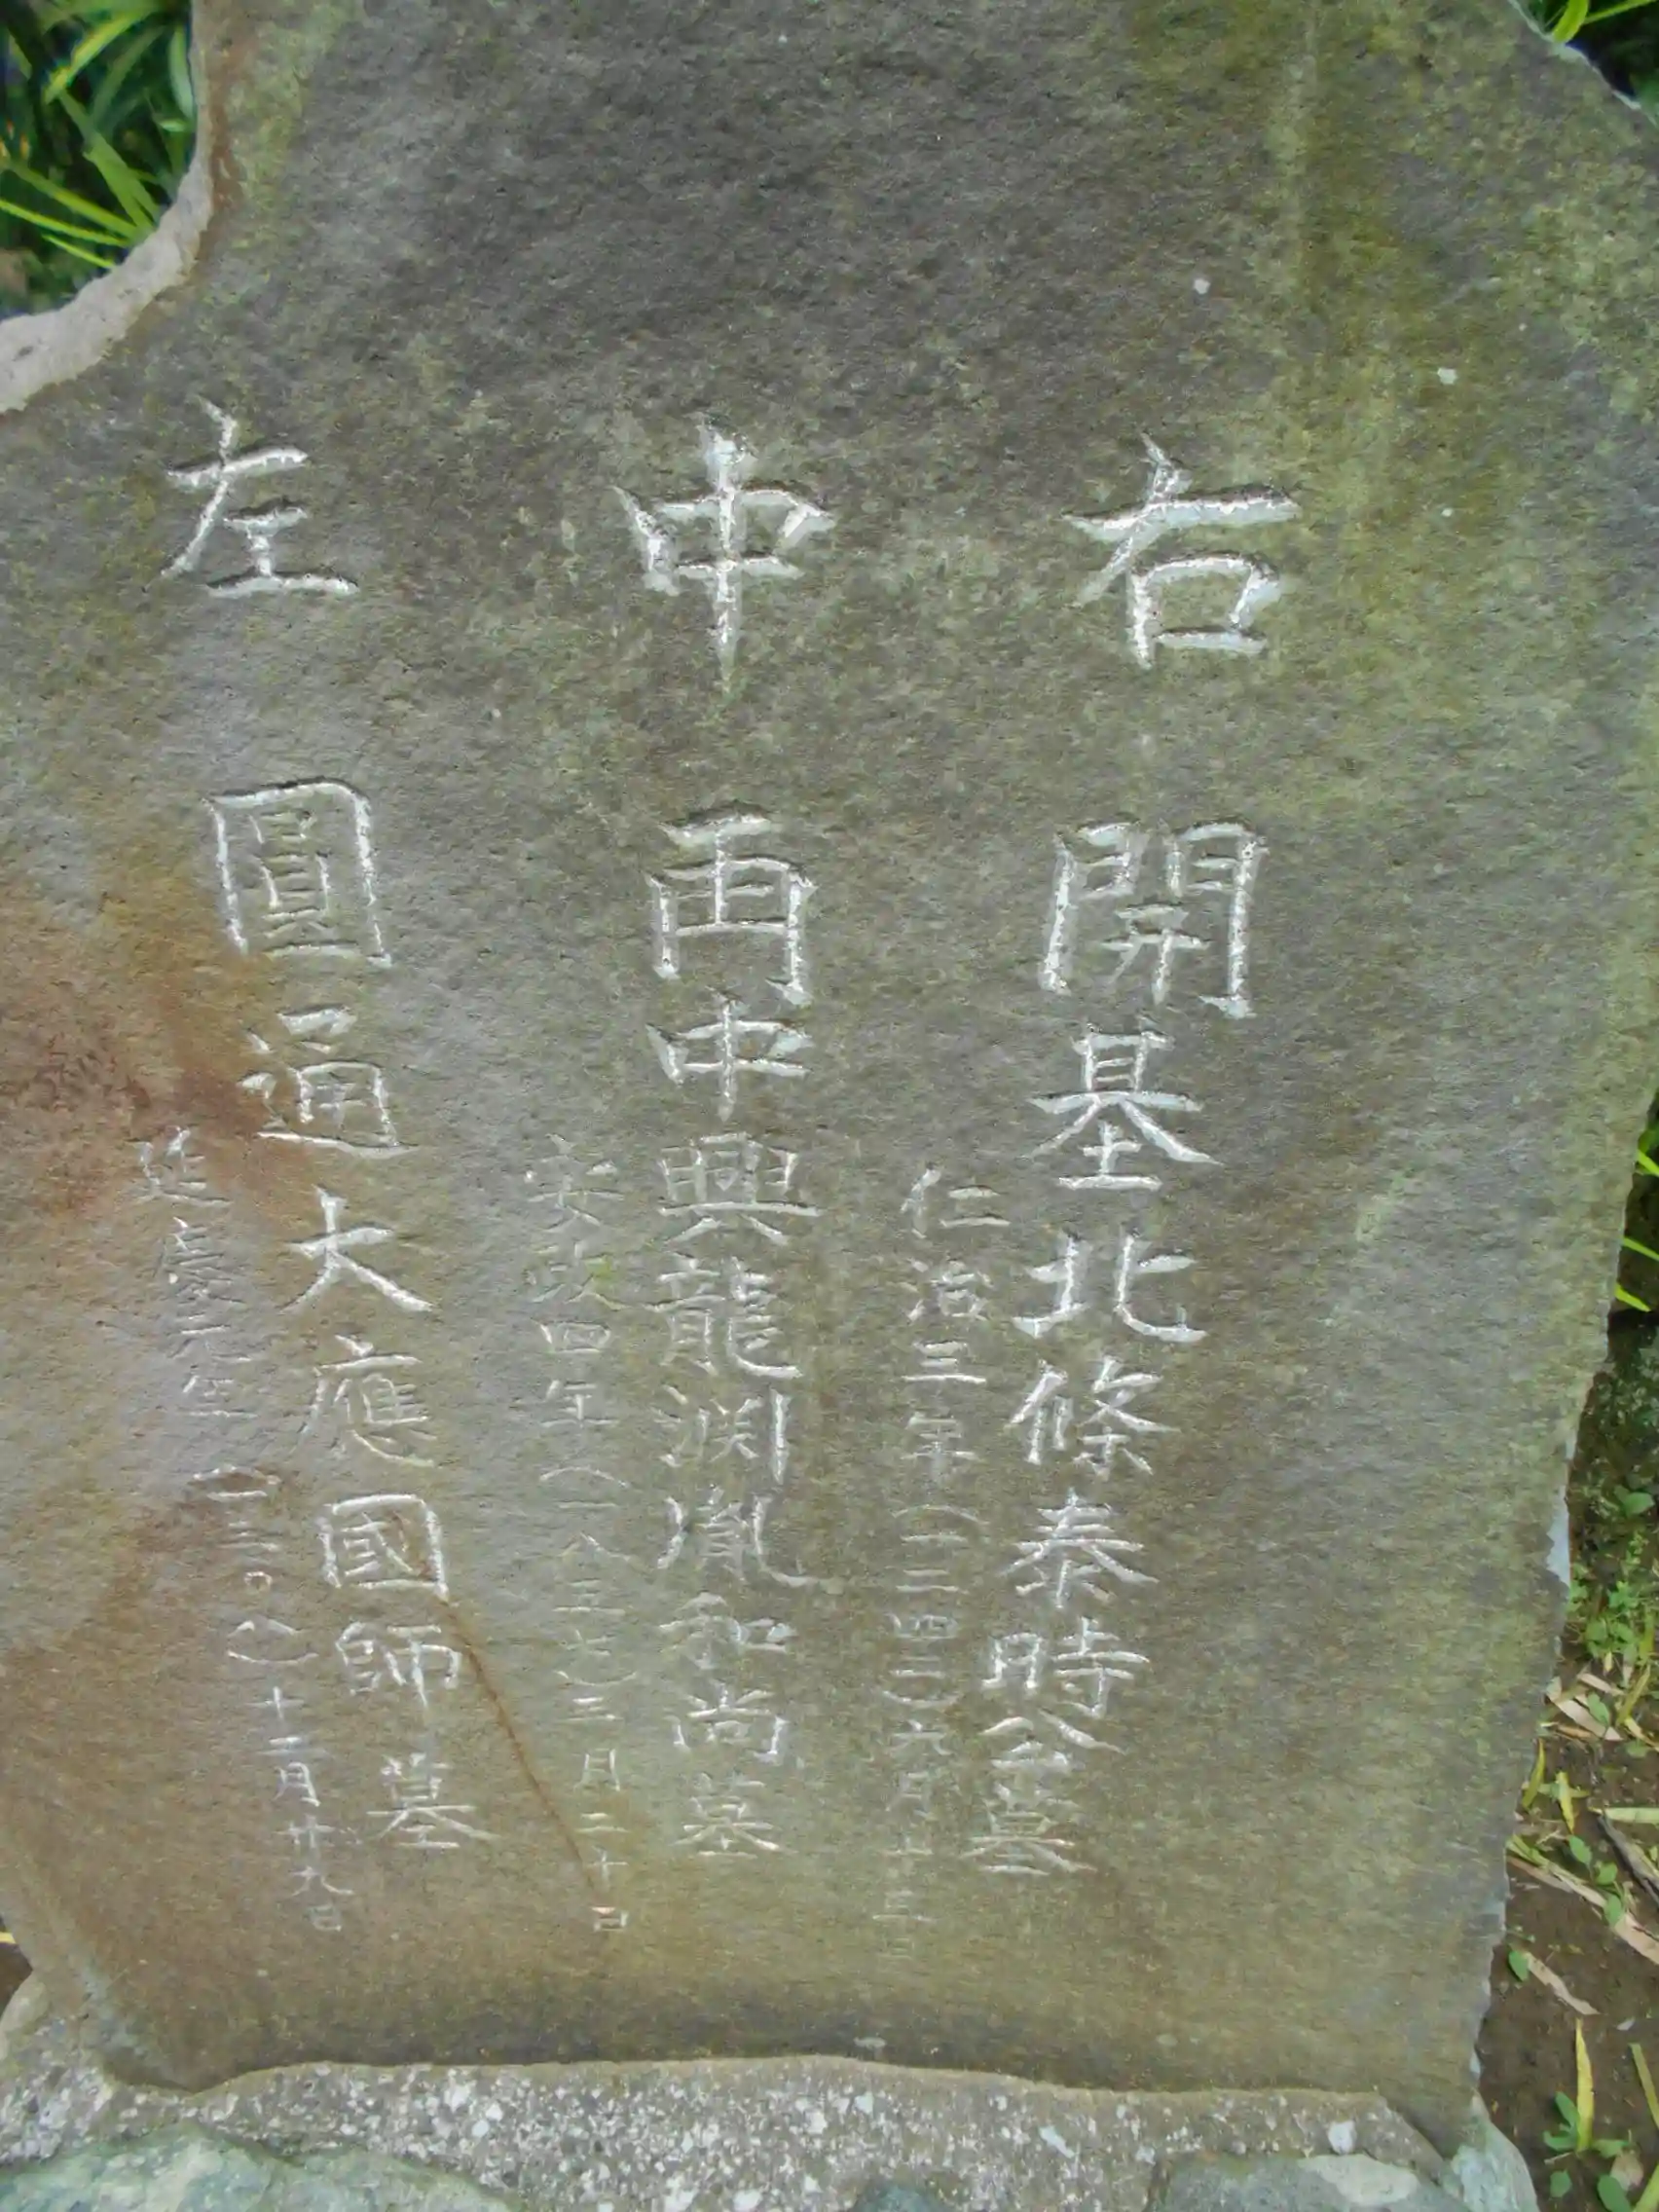 右 開基北條泰時公墓
仁治三年(一二四二)六月十五日
中 再中興龍渕胤和尚墓
安政四年(一八五七)三月二十日
左 圓通大應國師墓
延慶元年(一三〇八)十二月廿九日